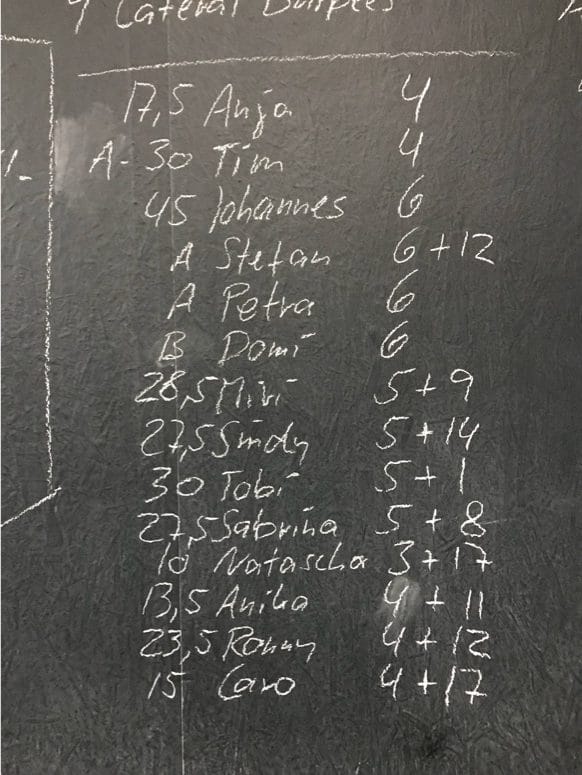 9 Lateral Burpees
17,5 Anja 4
A- 30 Tim 4
45 Johannes 6
A Stefan 6 + 12
A Petra 6
B Domi 6
28,5 Mivi 5 + 9
27,5 Sindy 5 + 14
30 Tobi 5 + 1
27,5 Sabrina 5 + 8
10 Natascha 3 + 17
13,5 Anika 4 + 11
23,5 Ronny 4 + 12
15 Caro 4 + 17